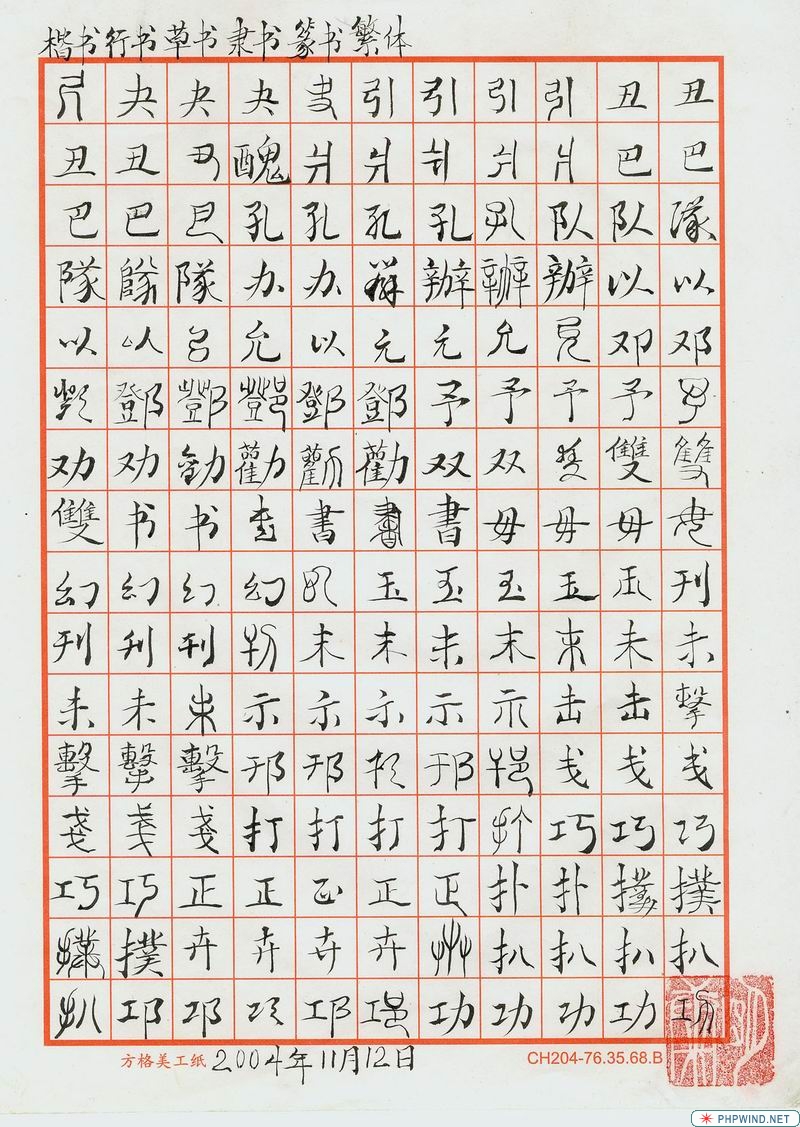 楷书行书草书隶书篆书繁体
尺夬夬夬夬引引引引丑丑
丑丑丑醜爿爿爿爿爿巴巴
巴巴巴孔孔孔孔孔队队隊
隊隊隊办办辦辦辦辦以以
以以㠯允以允允允允邓邓
鄧鄧鄧鄧鄧鄧予予予予予
劝劝勸勸勸勸双双雙雙雙
雙书书書書書書毋毋毋毋
幻幻幻幻幻玉玉玉玉玉刊
刊刊刊刊末末末末末未未
未未未示示示示示击击擊
擊擊擊邗邗邗邗邗戋戋戋
戔戔戔打打打打打巧巧巧
巧巧正正正正正扑扑撲撲
撲撲卉卉卉卉卉扒扒扒扒
扒邛邛邛邛邛功功功功功
方格美工纸 2004年11月12日 CH204-76.35.68.B
PHPWIND.NET